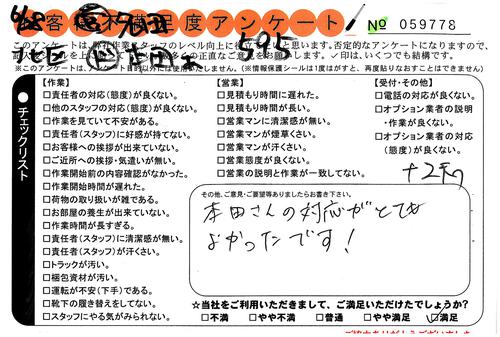 お客様不満足度アンケート
№ 059778
このアンケートは、弊社作業スタッフのレベル向上に役立
いと思います。否定的なアンケートになりますので、
正直なご意見をお願いします。✓印は、いくつでも結構です。
※このアンケートは、アンケート目的以外には使用いたしません。(※情報保護シールは1度はがすと、再度貼りなおすことはできません)
595
チェックリスト
【作業】
□責任者の対応(態度)が良くない。
□他のスタッフの対応(態度)が良くない。
□作業を見ていて不安がある。
□責任者(スタッフ)に好感が持てない。
□お客様への挨拶が出来ていない。
□ご近所への挨拶・気遣いが無い。
□作業開始前の内容確認がなかった。
□作業開始時間が遅れた。
□荷物の取り扱いが雑である。
□お部屋の養生が出来ていない。
□作業時間が長すぎる。
□責任者(スタッフ)に清潔感が無い。
□責任者(スタッフ)が汗くさい。
□トラックが汚い。
□梱包資材が汚い。
□運転が不安(下手)である。
□靴下の履き替えをしてない。
□スタッフにやる気がみられない。
【営業】
□見積もり時間に遅れた。
□見積もり時間が長い。
□営業マンに清潔感が無い。
□営業マンが煙草くさい。
□営業マンが汗くさい。
□営業態度が良くない。
□営業の説明と作業が一致してない。
【受付・その他】
□電話の対応が良くない。
□オプション業者の説明
・作業が良くない。
□オプション業者の対応
(態度)が良くない。
その他、ご意見・ご要望等ありましたらお書き下さい。
本田さんの対応がとても
よかったです!
☆当社をご利用いただきまして、ご満足いただけたでしょうか?
□不満 □やや不満 □普通 □やや満足 ☑満足